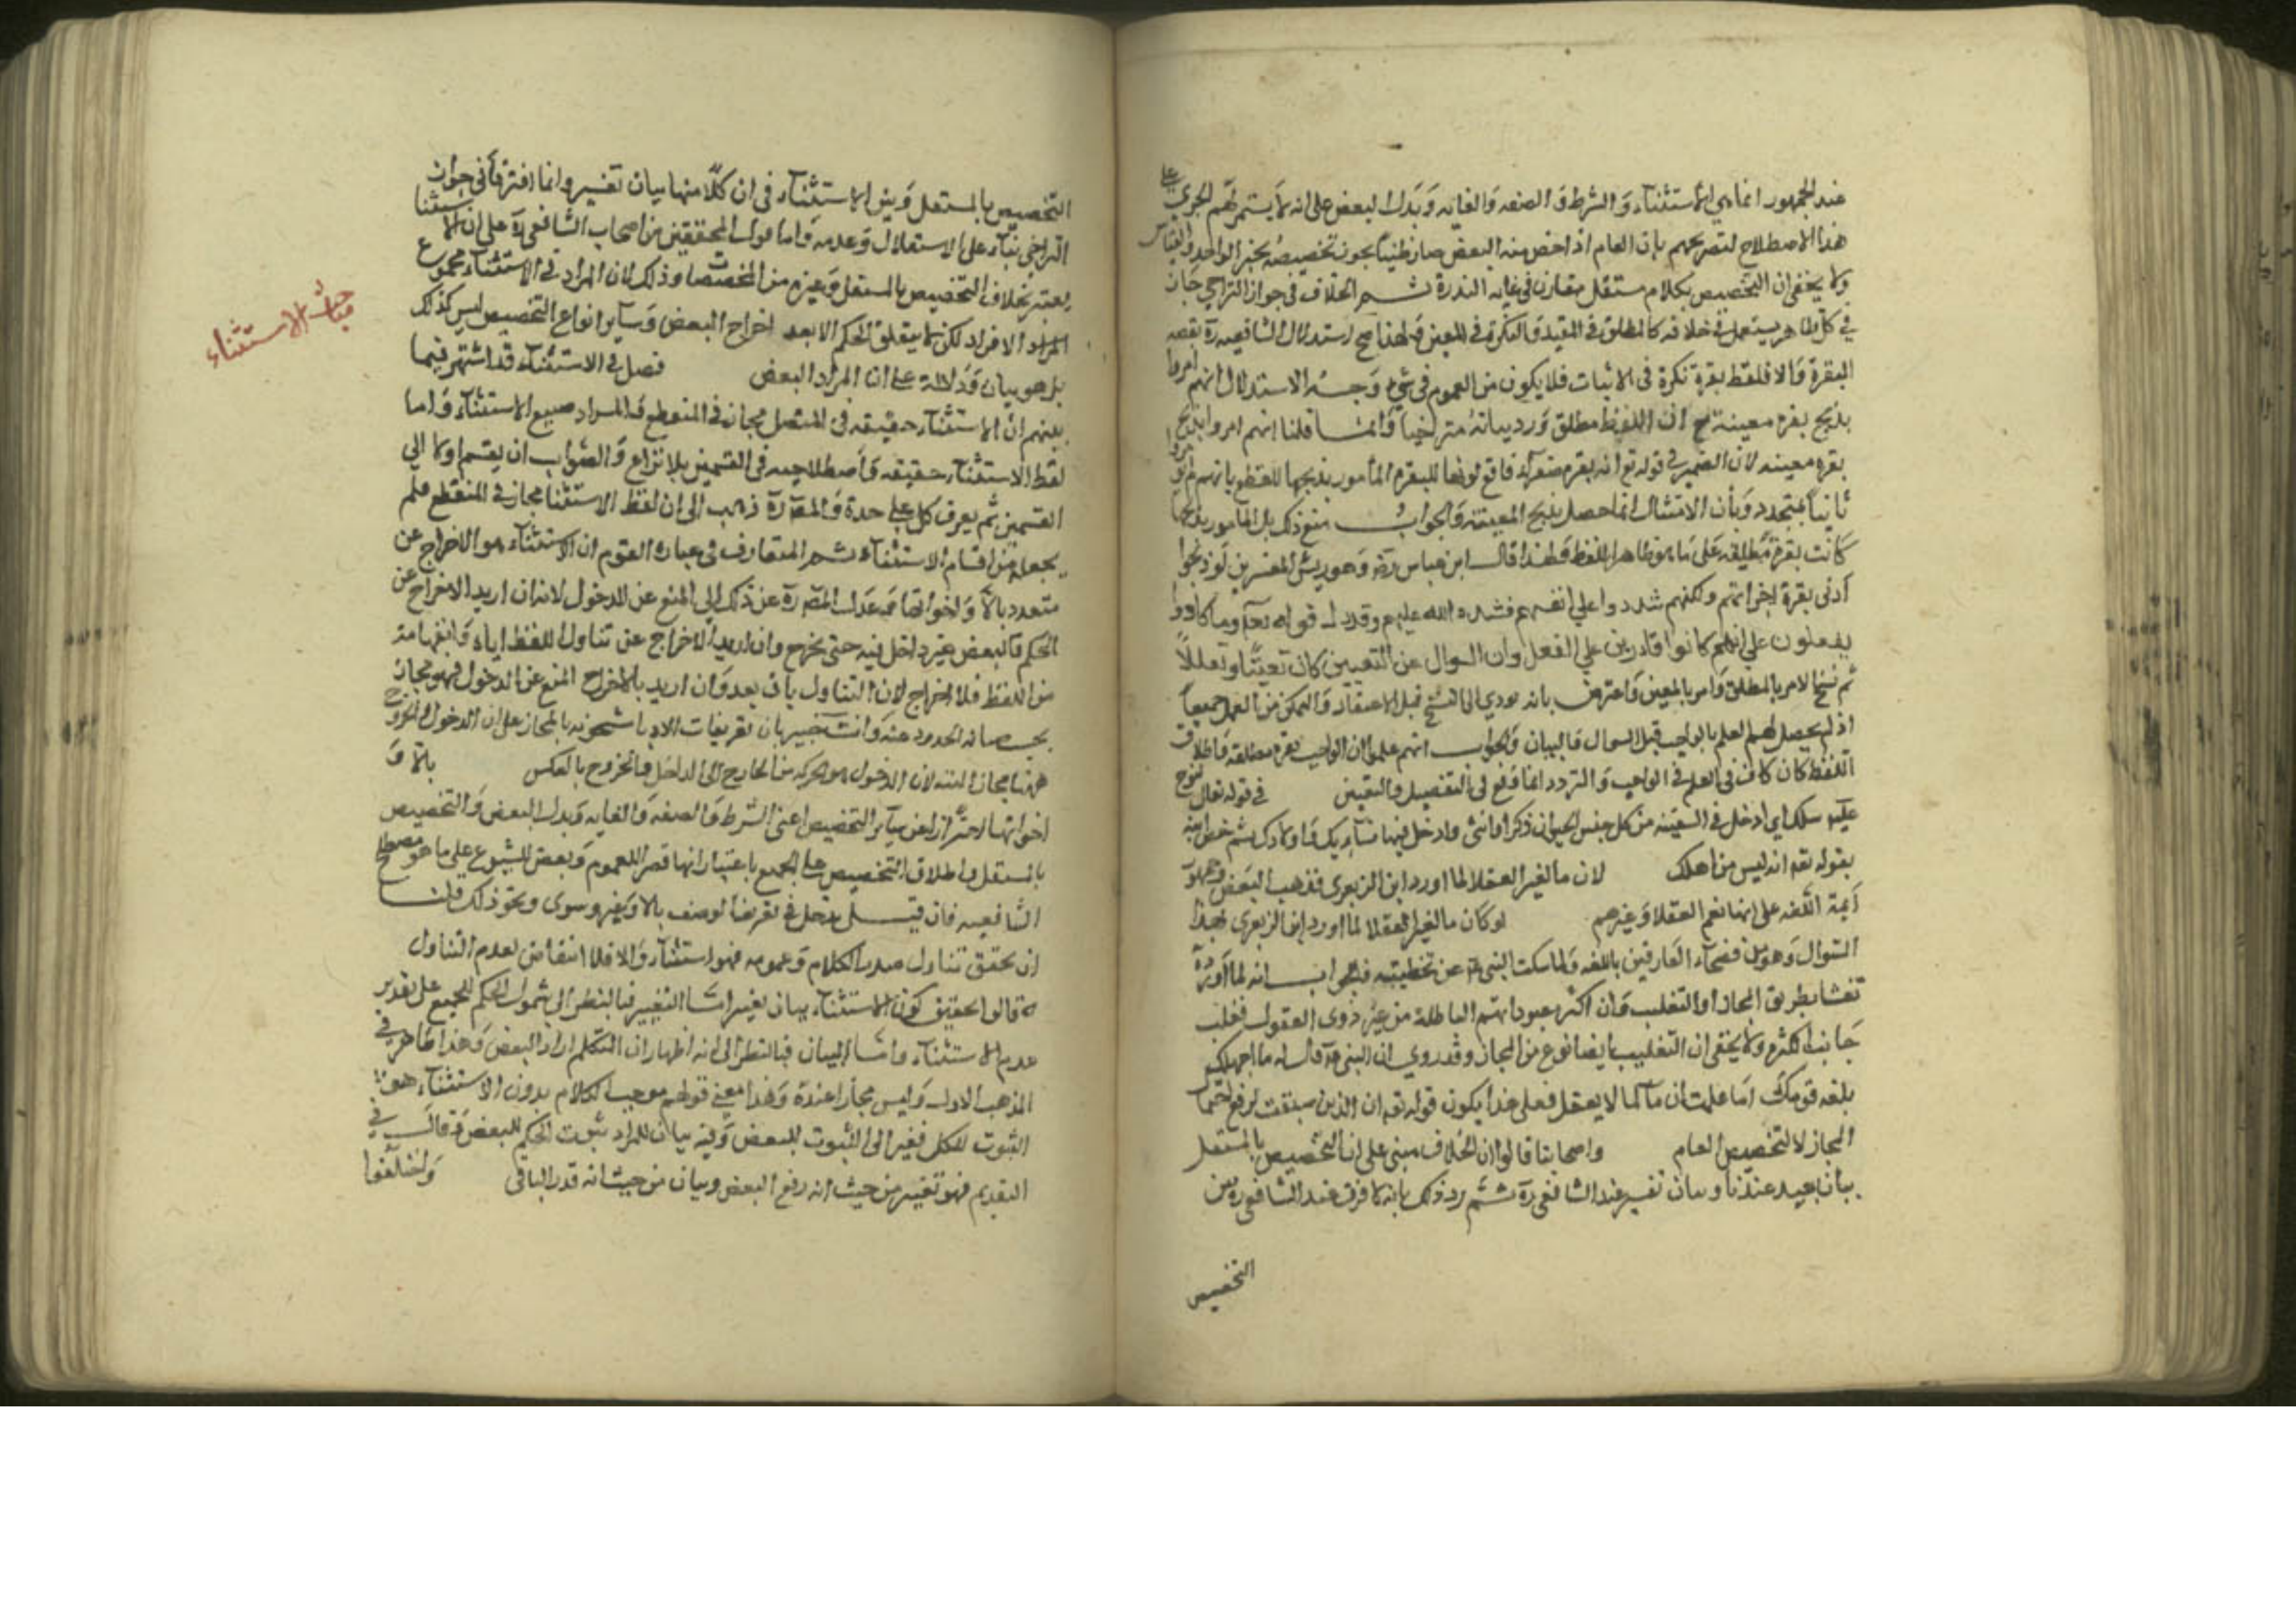 عند الجمهور انما هي الاستثناء والشرط والصفه والغايه وبدل البعض على انه لا يستمر لهم الجري على
هذا الاصطلاح لتصريحهم بان العام اذا خص منه البعض صار ظنيا يجوز تخصيصه بخبر الواحد والقياس
ولا يخفى ان التخصيص بكلام مستقل مقارن في غايه الندرة ثم الخلاف في جواز التراخي جار
في كل ظاهر يستعمل في خلافه كالمطلق في المقيد والنكرة في المعين ولهذا صح استدلال الشافعيه بقصه
البقرة والا فلفظ بقرة نكرة في الاثبات فلا يكون من العموم في شيء وجه الاستدلال انهم امروا
بذبح بقره معينة مع ان اللفظ مطلق ورد بيانه متراخيا وانما قلنا انهم امروا بذبح
بقره معينه لان الضمير في قوله تع انه بقره صفرآء فاقع لونها للبقره المأمور بذبحها للقطع بانهم لم يؤمروا
ثانيا بمتجدد وبأن الامتثال انما حصل بذبح المعينة والجواب منع ذلك بل المأمور بذبحها
كانت بقرة مطلقه على ما هو ظاهر اللفظ ولهذا قال ابن عباس رضه وهو رئيس المفسرين لو ذبحوا
أدنى بقرة اجزاتهم ولكنهم شددوا على انفسهم فشدد الله عليهم وقد دل قوله تعا وما كادوا
يفعلون على انهم كانوا قادرين على الفعل وان السوال عن التعيين كان تعنتا وتعللا
ثم نسخ الامر بالمطلق وامر بالمعين واعترض بانه يودي الى النسخ قبل الاعتقاد والتمكن من العمل جميعا
اذ لم يحصل لهم العلم بالواجب قبل السوال والبيان والجواب انهم علموا ان الواجب بقره مطلقه واطلاق
اللفظ كان كاف في العلم في الواجب والتردد انما وقع في التفصيل والتعيين في قوله تعالى لنوح
عليه سلك اي ادخل في السفينه من كل جنس الحيوان ذكرا وانثى وادخل فيها نساءك واولادك ثم خص ابنه
بقوله تع انه ليس من اهلك لان ما لغير العقلا لما اورد ابن الزبعرى فذهب البعض وجمهور
أيمة اللغه على انها تعم العقلا وغيرهم لو كان ما لغير العقلا لما اورد ابن الزبعرى هذا
السوال وهو من فصحآء العارفين باللغه ولما سكت النبي عم عن تخطيته فالجواب انه لما اورده
تعنتا بطريق المجاز او التغليب فان اكثر معبوداتهم الباطلة من غير ذوي العقول فغلب
جانب الكثرة ولا يخفى ان التغليب ايضا نوع من المجاز وقد روي ان النبي عم قال له ما اجهلك
بلغه قومك اما علمت ان ما لما لا يعقل فعلى هذا يكون قوله تع ان الذين سبقت لرفع احتمال
المجاز لا لتخصيص العام واصحابنا قالوا ان الخلاف مبني على ان التخصيص بالمستقل
بيان تغيير عندنا وبيان تفسير عند الشافعي ره ثم رد ذلك بانه لا فرق عند الشافعي ره بين
التخصيص
التخصيص بالمستقل وبين الاستثنآء في ان كلا منهما بيان تفسير وانما افترقا في جواز
التراخي بناء على الاستقلال وعدمه واما قول المحققين من اصحاب الشافعي ره على ان الاستثنا
بعينه بخلاف التخصيص بالمستقل وغيره من المخصصات وذلك لان المراد في الاستثنآء مجموع
الافراد لكن لا يتعلق الحكم الا بعد اخراج البعض وساير انواع التخصيص ليس كذلك
بل هو بيان ودلالة على ان المراد البعض فصل في الاستثنآء قد اشتهر فيما
بينهم ان الاستثنآء حقيقه في المتصل مجاز في المنقطع والمراد صيغ الاستثنآء واما
لفظ الاستثنآء حقيقه واصطلاحيه في القسمين بلا نزاع والصواب ان يقسم اولا الى
القسمين ثم يعرف كل على حدة والمص ره ذهب الى ان لفظ الاستثنا مجاز في المنقطع فلم
يجعله من اقسام الاستثناء ثم المتعارف في عبارة القوم ان الاستثناء هو الاخراج عن
متعدد بالا واخواتها فعدل المص ره عن ذلك الى المنع عن الدخول لانه ان اريد الاخراج عن
الحكم فالبعض غير داخل فيه حتى يخرج وان اريد الاخراج عن تناول اللفظ اياه وانفهامه
من اللفظ فلا اخراج لان التناول باق بعد وان اريد بالاخراج المنع عن الدخول فهو مجاز
يجب صيانه الحدود عنه وانت خبير بان تعريفات الادبا مشحونه بالمجاز على ان الدخول والخروج
ههنا مجاز البته لان الدخول هو الحركه من الخارج الى الداخل والخروج بالعكس بالا و
اخواتها احتراز عن سآير التخصيص اعني الشرط والصفه والغايه وبدل البعض والتخصيص
بالمستقل واطلاق التخصيص على الجميع باعتبار انها قصر للعموم وبعض الشيوع على ما هو مصطلح
الشافعيه فان قيل يدخل في تعريف الوصف بالا وبغير وسوى ونحو ذلك قلنا
ان تحقق تناول صدر الكلام وعمومه فهو استثنآء والا فلا انتقاض لعدم التناول
قالوا تحقيق كون الاستثنآء بيان تغيير اما التغيير فبالنظر الى شمول الحكم للجميع على تقدير
عدم الاستثنآء واما البيان فبالنظر الى انه اظهار ان المتكلم اراد البعض وهذا ظاهر في
المذهب الاول وليس مجازا عنده وهذا معنى قولهم موجب الكلام بدون الاستثنآء هو
الثبوت للكل فغير الى الثبوت للبعض وفيه بيان للمراد ثبوت الحكم للبعض وقال في
التقديم فهو تغيير من حيث انه رفع البعض وبيان من حيث انه قدر الباقي واختلفوا
مبحث الاستثناء